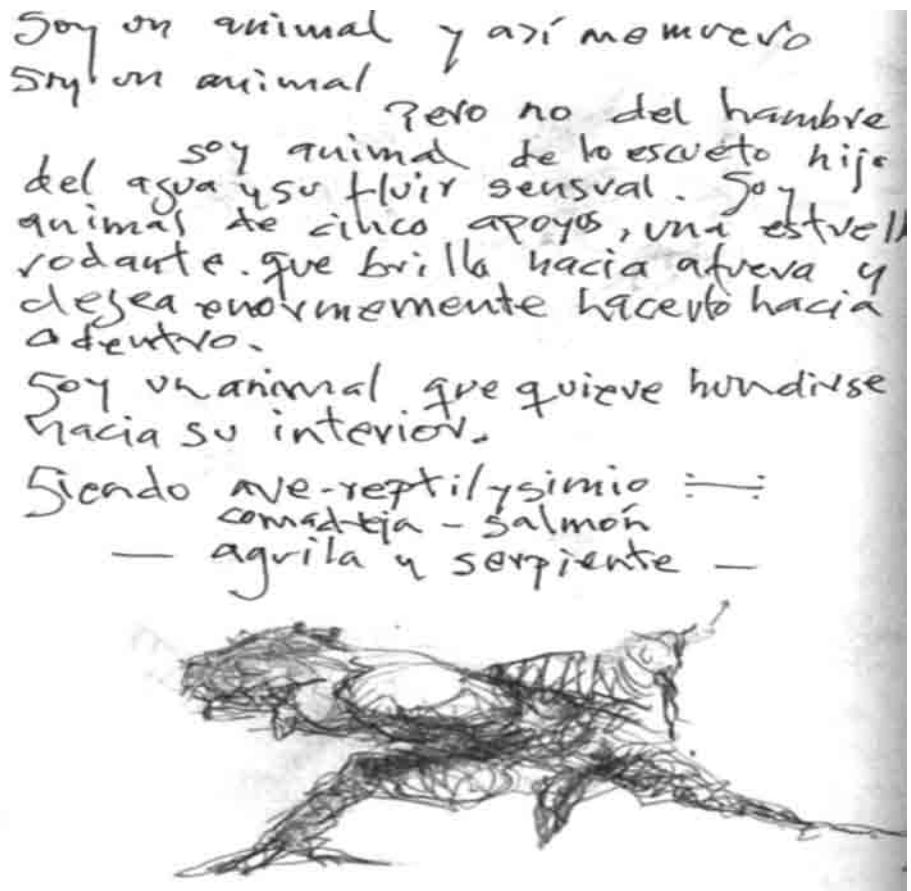 Soy un animal y así me muevo
Soy un animal
Pero no del hambre
soy animal de lo escueto hijo
del agua y su fluir sensual. Soy
animal de cinco apoyos, una estrell
rodante. que brilla hacia afuera y
desea enormemente hacerlo hacia
adentro.
Soy un animal que quiere hundirse
hacia su interior.
Siendo ave-reptil y simio
comadreja - salmón
— aguila y serpiente —